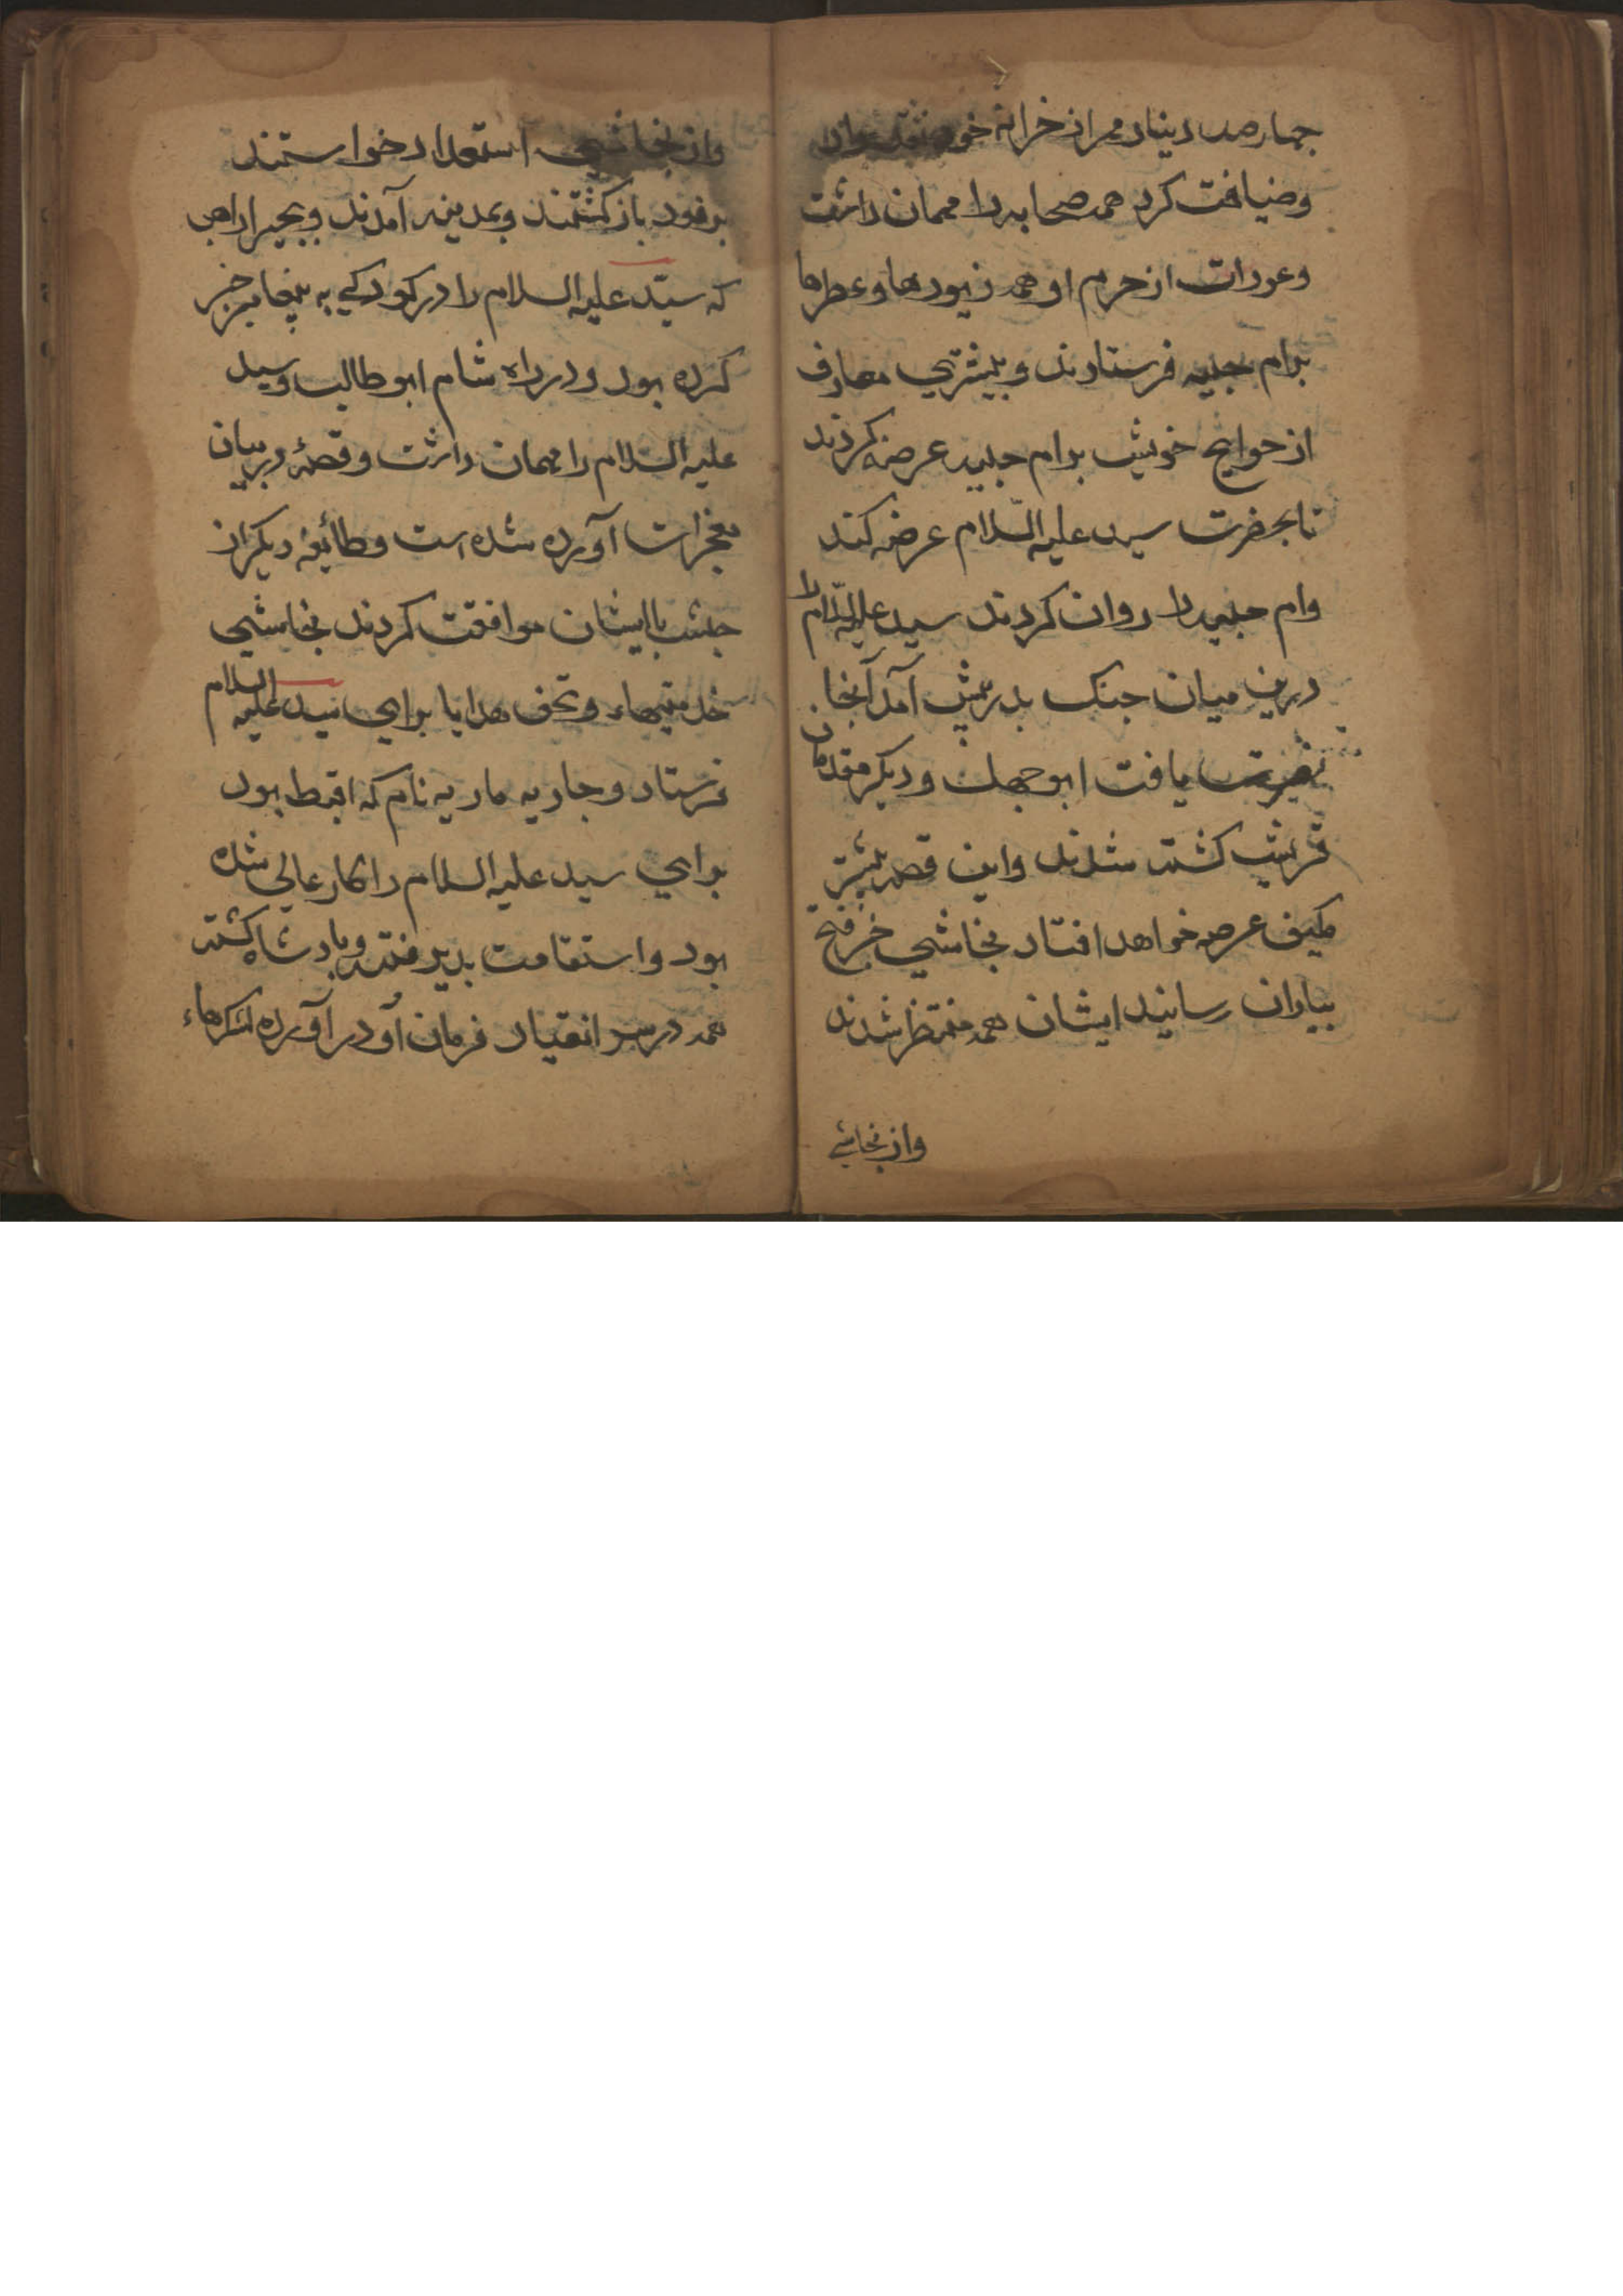 چهارصد دینار مهر از خزانه خود نقد بداد
وضیافت کرد همه صحابه را مهمان داشت
وعورات از حرم او همه زیورها وعطرها
برام حبیبه فرستادند و بیشتری معارف
از حوایج خویش برام حبیبه عرضه کردند
تا بحضرت سید علیه السّلام عرضه کند
وام حبیبه را روان کردند سید علیه السّلام را
درین میان جنک بدر پیش آمد آنجا
نصرت یافت ابو جهل ودیکر مقدمان
قریش کشته شدند واین قصه پیشتر
عرصه خواهد افتاد نجاشی خبر فتح
بیاران رسانید ایشان همه منتظر شدند
واز نجاشی
واز نجاشی استعداد خواستند
برفور باز کشتند وبمدینه آمدند وبحیرا راهب
که سیّد علیه السلام را در کودکی به پیغامبر خبر
کرده بود ودر راه شام ابو طالب وسید
علیه السلام را مهمان داشت وقصهٔ در بیان
معجزات آورده شده است وطائفه دیکر از
حبشه با ایشان موافقت کردند نجاشی
خدمتیهاء وتحف هدایا برای سید علیه السلام
فرستاد وجاریه ماریه نام که اقبط بود
برای سید علیه السلام را کار عالی شده
بود واستقامت پذیرفته وپادشاه کشته
همه در سر انقیاد فرمان او در آورده لشکرهاء